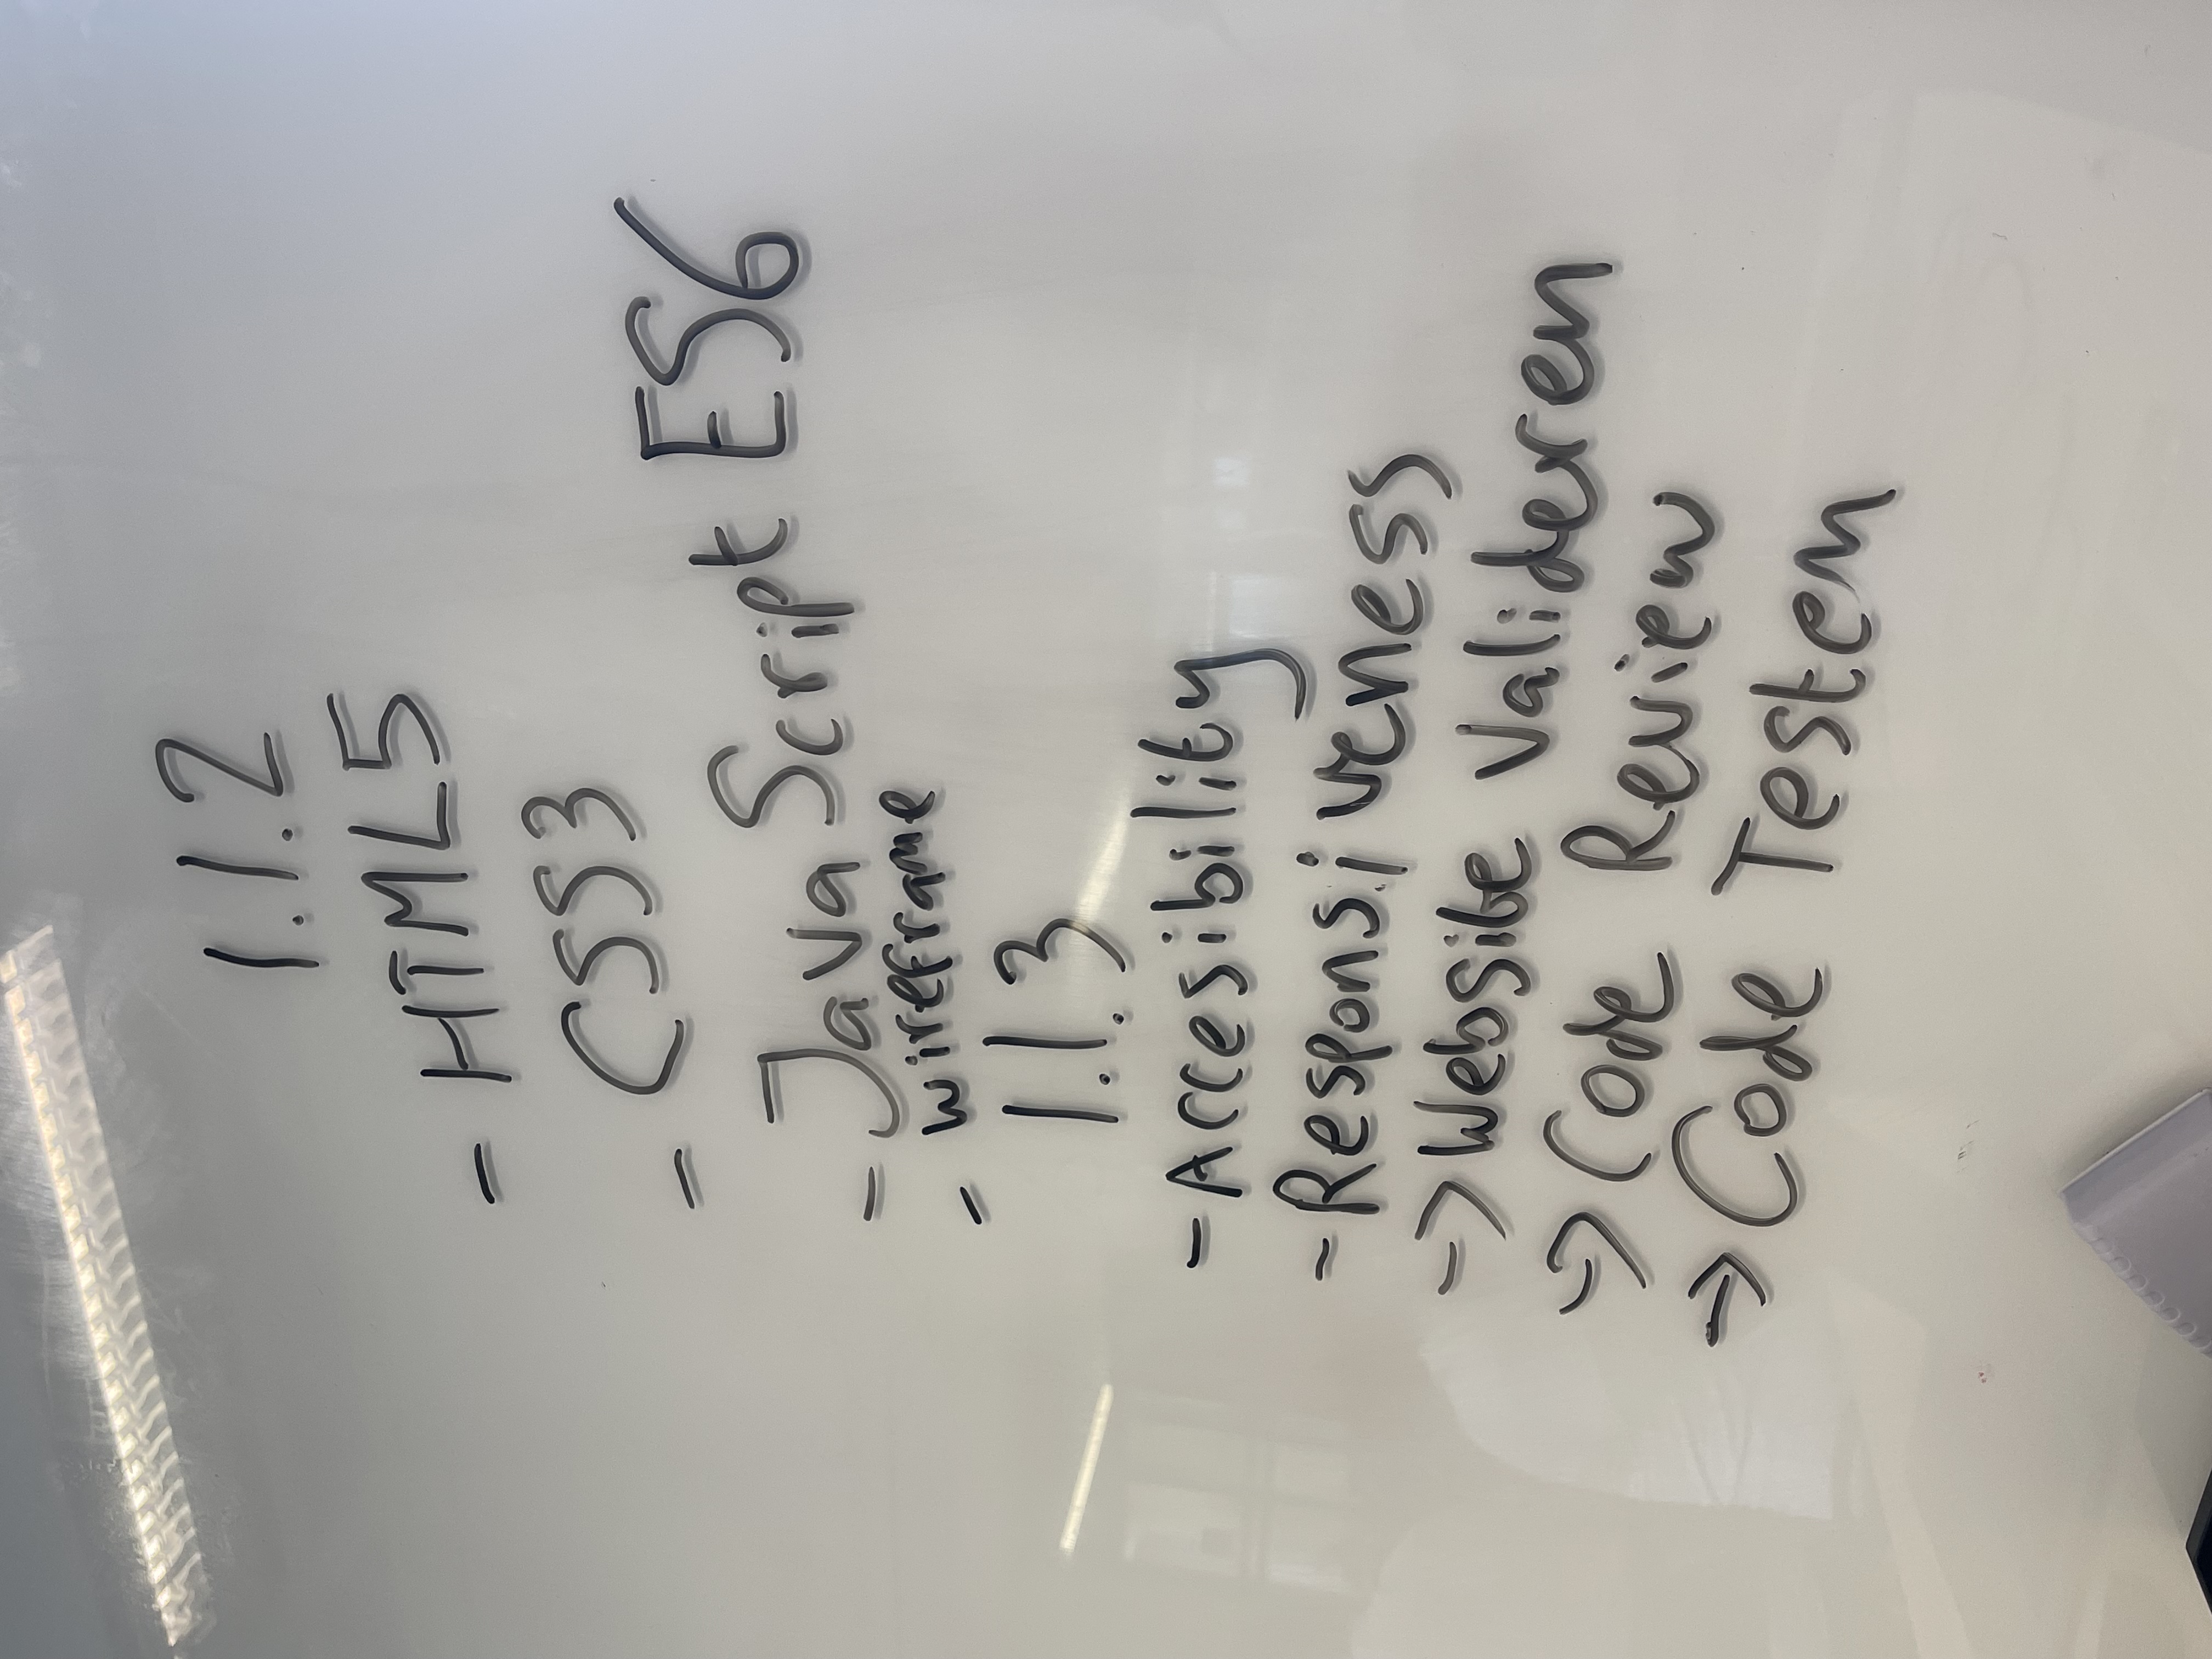 1.1.2
- HTML5
- CSS3
- JavaScript ES6
- wireframe
1.1.3
- Accesibility
- Responsiveness
-> Website Valideren
-> Code Review
-> Code Testen